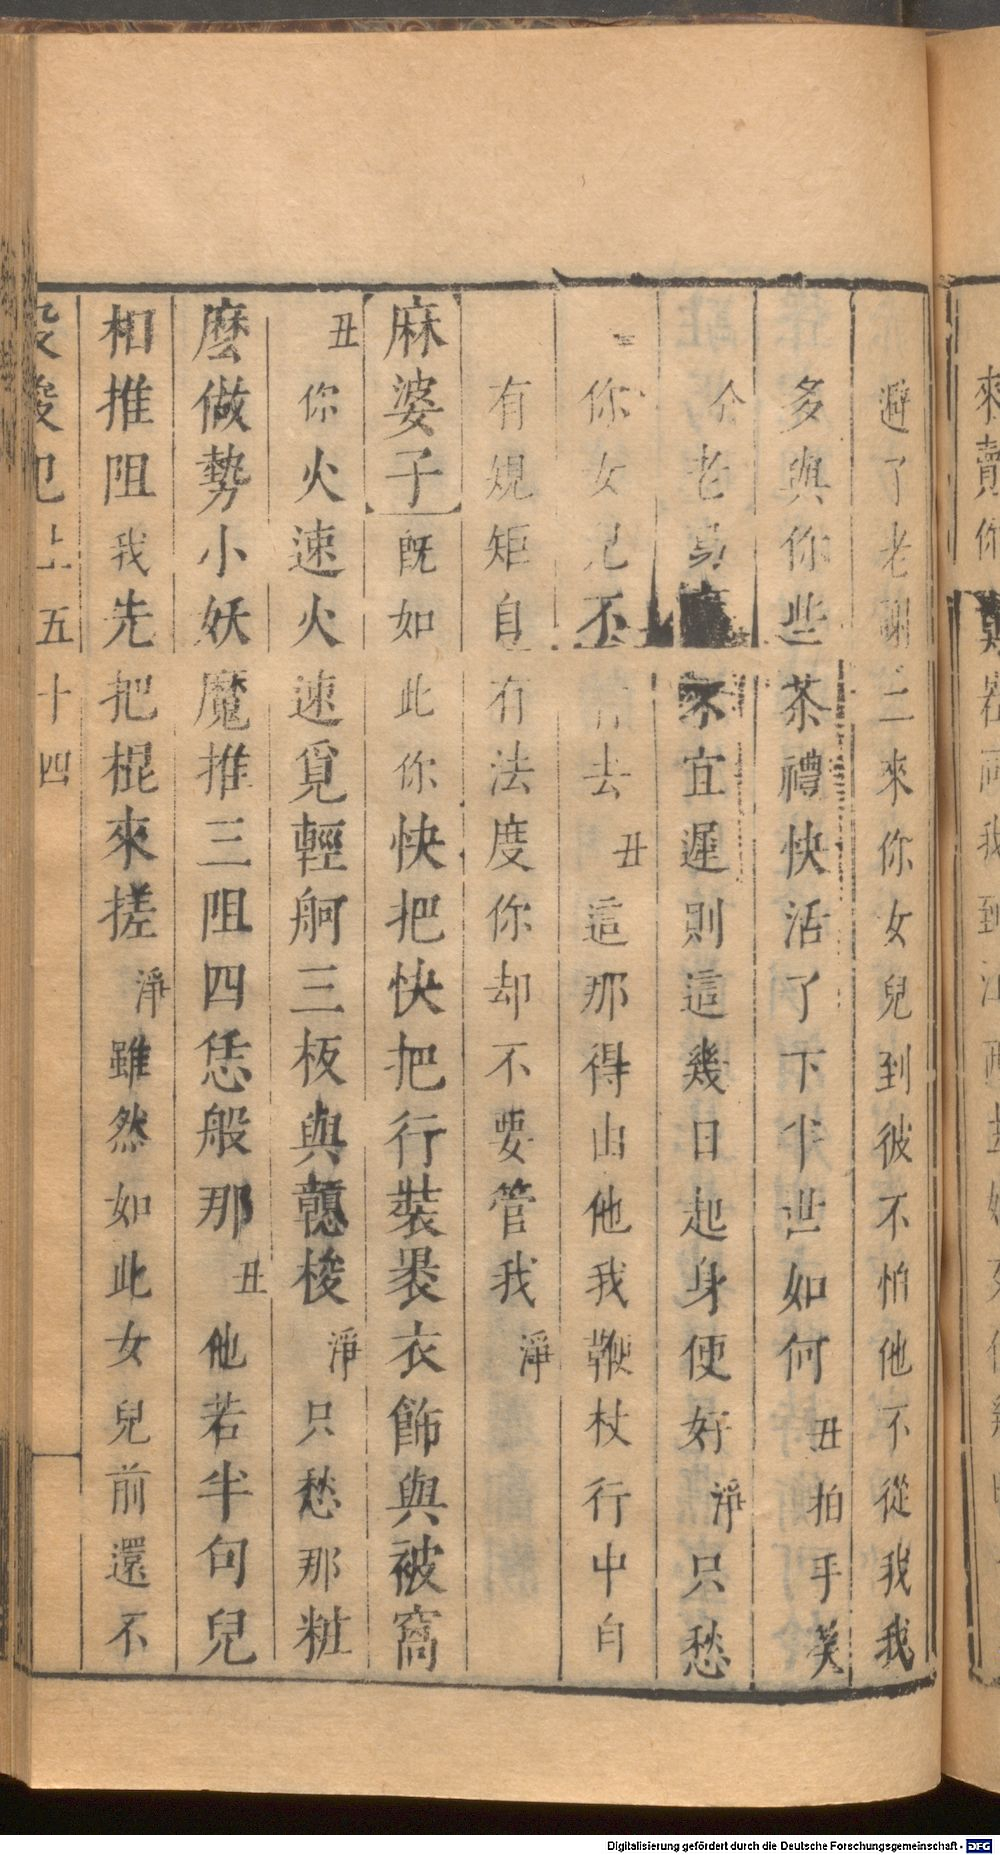 來賣你
避了老謝三來你女兒到彼不怕他不從我我
多與你些茶禮快活了下半世如何丑拍手笑
介老 不宜遲則這幾日起身便好淨只愁
你女兒不 去丑這那得由他我鞭杖行中自
有規矩自有法度你却不要管我淨
麻婆子旣如此你快把快把行裝褁衣飾與被窩
丑你火速火速覓輕舸三板與 梭淨只愁那粧
麼做勢小妖魔推三阻四恁般那丑他若半句兒
相推阻我先把棍來搓淨雖然如此女兒前還不
上五十四
Digitalisierung gefördert durch die Deutsche Forschungsgemeinschaft - DFG